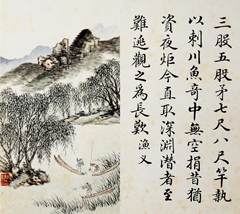 三股五股矛七尺八尺竿執
以刺川魚奇中無空捐昔猶
資夜炬今直取深淵潛者至
難逃觀之為長歎漁义